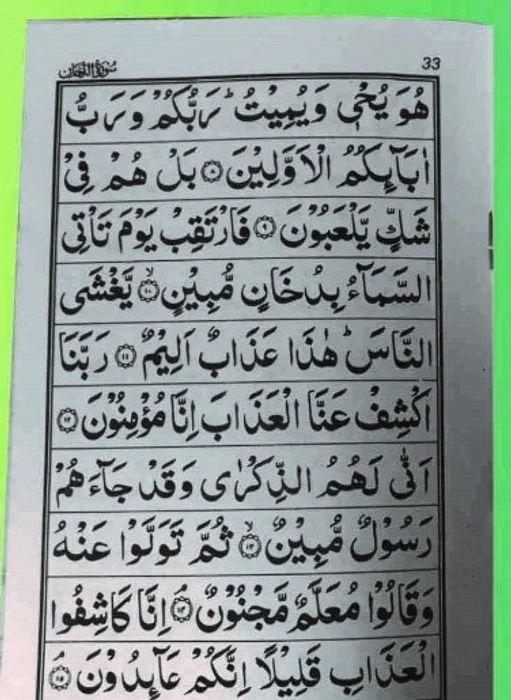 33 سورة الدخان
هُوَ يُحْيٖ وَيُمِيْتُ ؕ رَبُّكُمْ وَرَبُّ
اٰبَآئِكُمُ الْاَوَّلِيْنَ ۝۸ بَلْ هُمْ فِيْ
شَكٍّ يَّلْعَبُوْنَ ۝۹ فَارْتَقِبْ يَوْمَ تَاْتِي
السَّمَآءُ بِدُخَانٍ مُّبِيْنٍ ۝۱۰ۙ يَّغْشَى
النَّاسَ ؕ هٰذَا عَذَابٌ اَلِيْمٌ ۝۱۱ رَبَّنَا
اكْشِفْ عَنَّا الْعَذَابَ اِنَّا مُؤْمِنُوْنَ ۝۱۲
اَنّٰى لَهُمُ الذِّكْرٰى وَقَدْ جَآءَهُمْ
رَسُوْلٌ مُّبِيْنٌ ۝۱۳ۙ ثُمَّ تَوَلَّوْا عَنْهُ
وَقَالُوْا مُعَلَّمٌ مَّجْنُوْنٌ ۝۱۴ۘ اِنَّا كَاشِفُوا
الْعَذَابِ قَلِيْلًا اِنَّكُمْ عَآئِدُوْنَ ۝۱۵